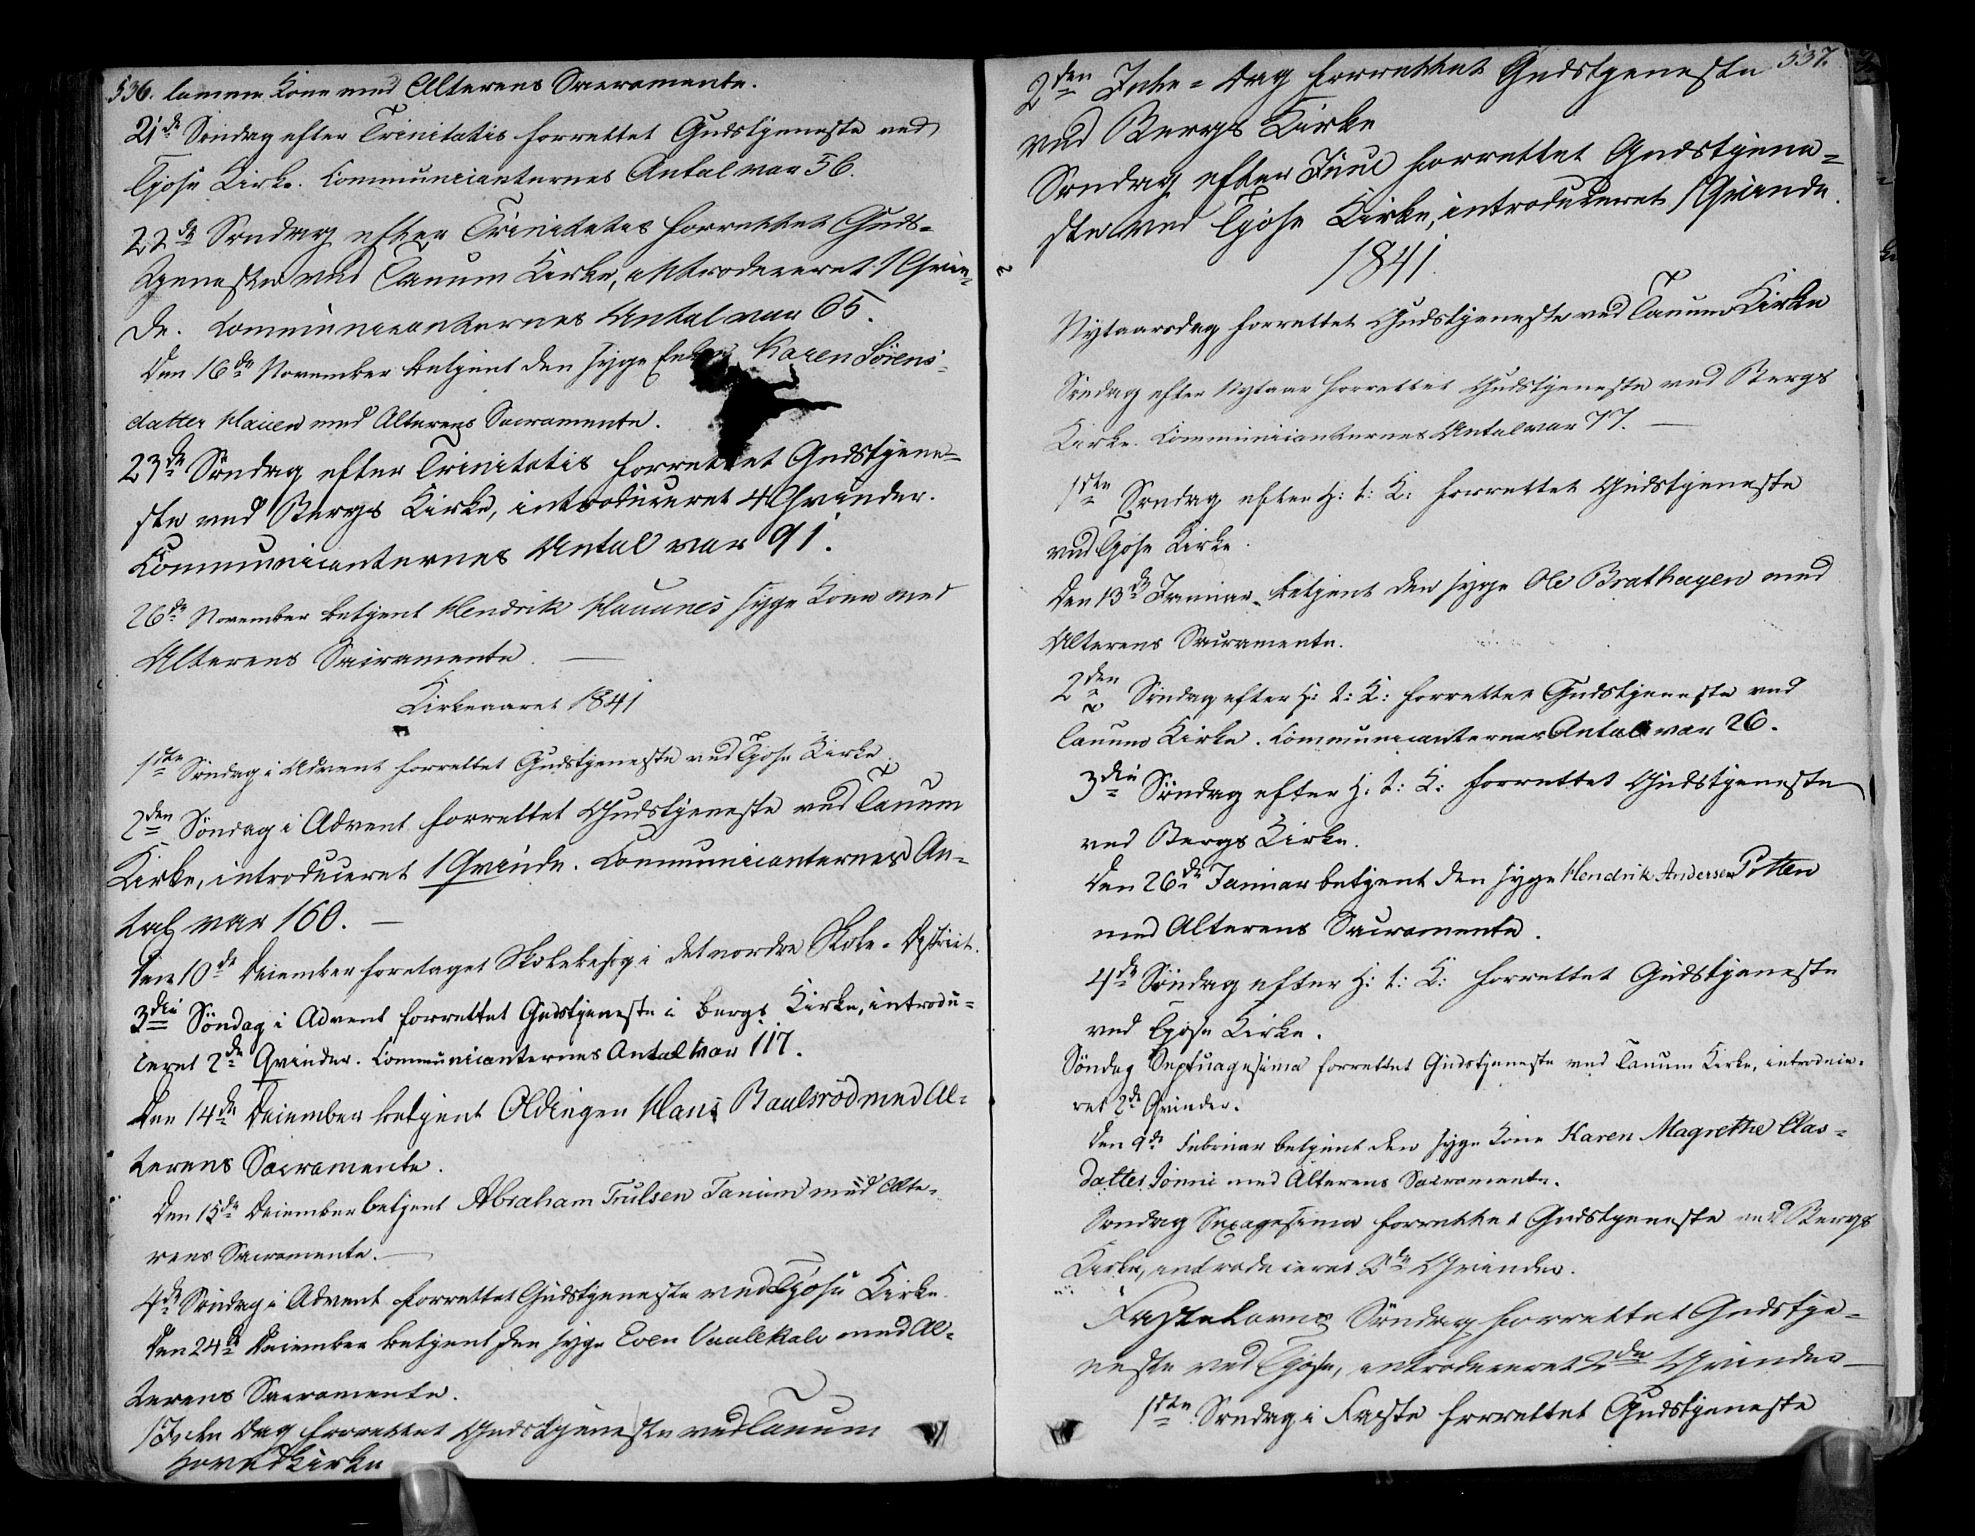 536. lamme Kone med Alterens Sacramente.
21de Søndag efter Trinitatis forrettet Gudstjeneste ved
Tjøse Kirke. Communicanternes Antal var 56.
22de Søndag efter Trinitatis forrettet Guds-
tjeneste ved Tanum Kirke, introduceret 1 Qvin-
de. Communicanternes Antal var 65.
Den 16de November betjent den syge Enke Karen Sörens-
datter Hauen med Alterens Sacramente.
23de Søndag efter Trinitatis forrettet Gudstjene-
ste ved Bergs Kirke, introduceret 4 Qvinder.
Communicanternes Antal var 91.
26de November betjent Hendrik Hauanes syge Kone med
Alterens Sacramente.
Kirkeaaret 1841
1ste Søndag i Advent forrettet Gudstjeneste ved Tjøse Kirke.
2den Søndag i Advent forrettet Gudstjeneste ved Tanum
Kirke, introduceret 1 Qvinde. Communicanternes An-
tal var 160. —
Den 10de December foretaget Skolebesøg i det nordre Skole-District.
3die Søndag i Advent forrettet Gudstjeneste i Bergs Kirke, introdu-
ceret 2de Qvinder. Communicanternes Antal var 117.
Den 14de December betjent Oldingen Hans Baulsrød med Al-
terens Sacramente.
Den 15de December betjent Abraham Trulsen Tanum med Alte-
rens Sacramente. —
4de Søndag i Advent forrettet Gudstjeneste ved Tjøse Kirke.
Den 24de December betjent den syge Even Vaulekalv med Al-
terens Sacramente.
1 Jule Dag forrettet Gudstjeneste ved Tanum
Hovedkirke
537.
2den Jule-Dag forrettet Gudstjeneste
ved Bergs Kirke
Søndag efter Juul forrettet Gudstjene-
ste ved Tjøse Kirke, introduceret 1 Qvinde.
1841.
Nytaarsdag forrettet Gudstjeneste ved Tanum Kirke
Søndag efter Nytaar forrettet Gudstjeneste ved Bergs
Kirke. Communicanternes Antal var 77. —
1ste Søndag efter H: t: K: forrettet Gudstjeneste
ved Tjøse Kirke.
Den 13de Januar betjent den syge Ole Brathagen med
Alterens Sacramente.
2den Søndag efter H: t: K: forrettet Gudstjeneste ved
Tanum Kirke. Communicanternes Antal var 26.
3die Søndag efter H: t: K: forrettet Gudstjeneste
ved Bergs Kirke.
Den 26de Januar betjent den syge Hendrik Andersen Potten
med Alterens Sacramente.
4de Søndag efter H: t: K: forrettet Gudstjeneste
ved Tjøse Kirke.
Søndag Septuagesima forrettet Gudstjeneste ved Tanum Kirke, introduce-
ret 2de Qvinder.
Den 9de Februar betjent den syge Kone Karen Magrethe Clas-
datter med Alterens Sacramente.
Søndag Sexagesima forrettet Gudstjeneste ved Bergs
Kirke, introduceret 2de Qvinder.
Fastelavns Søndag forrettet Gudstje-
neste ved Tjøse, introduceret 2de Qvinder —
1ste Søndag i Faste forrettet Gudstjeneste